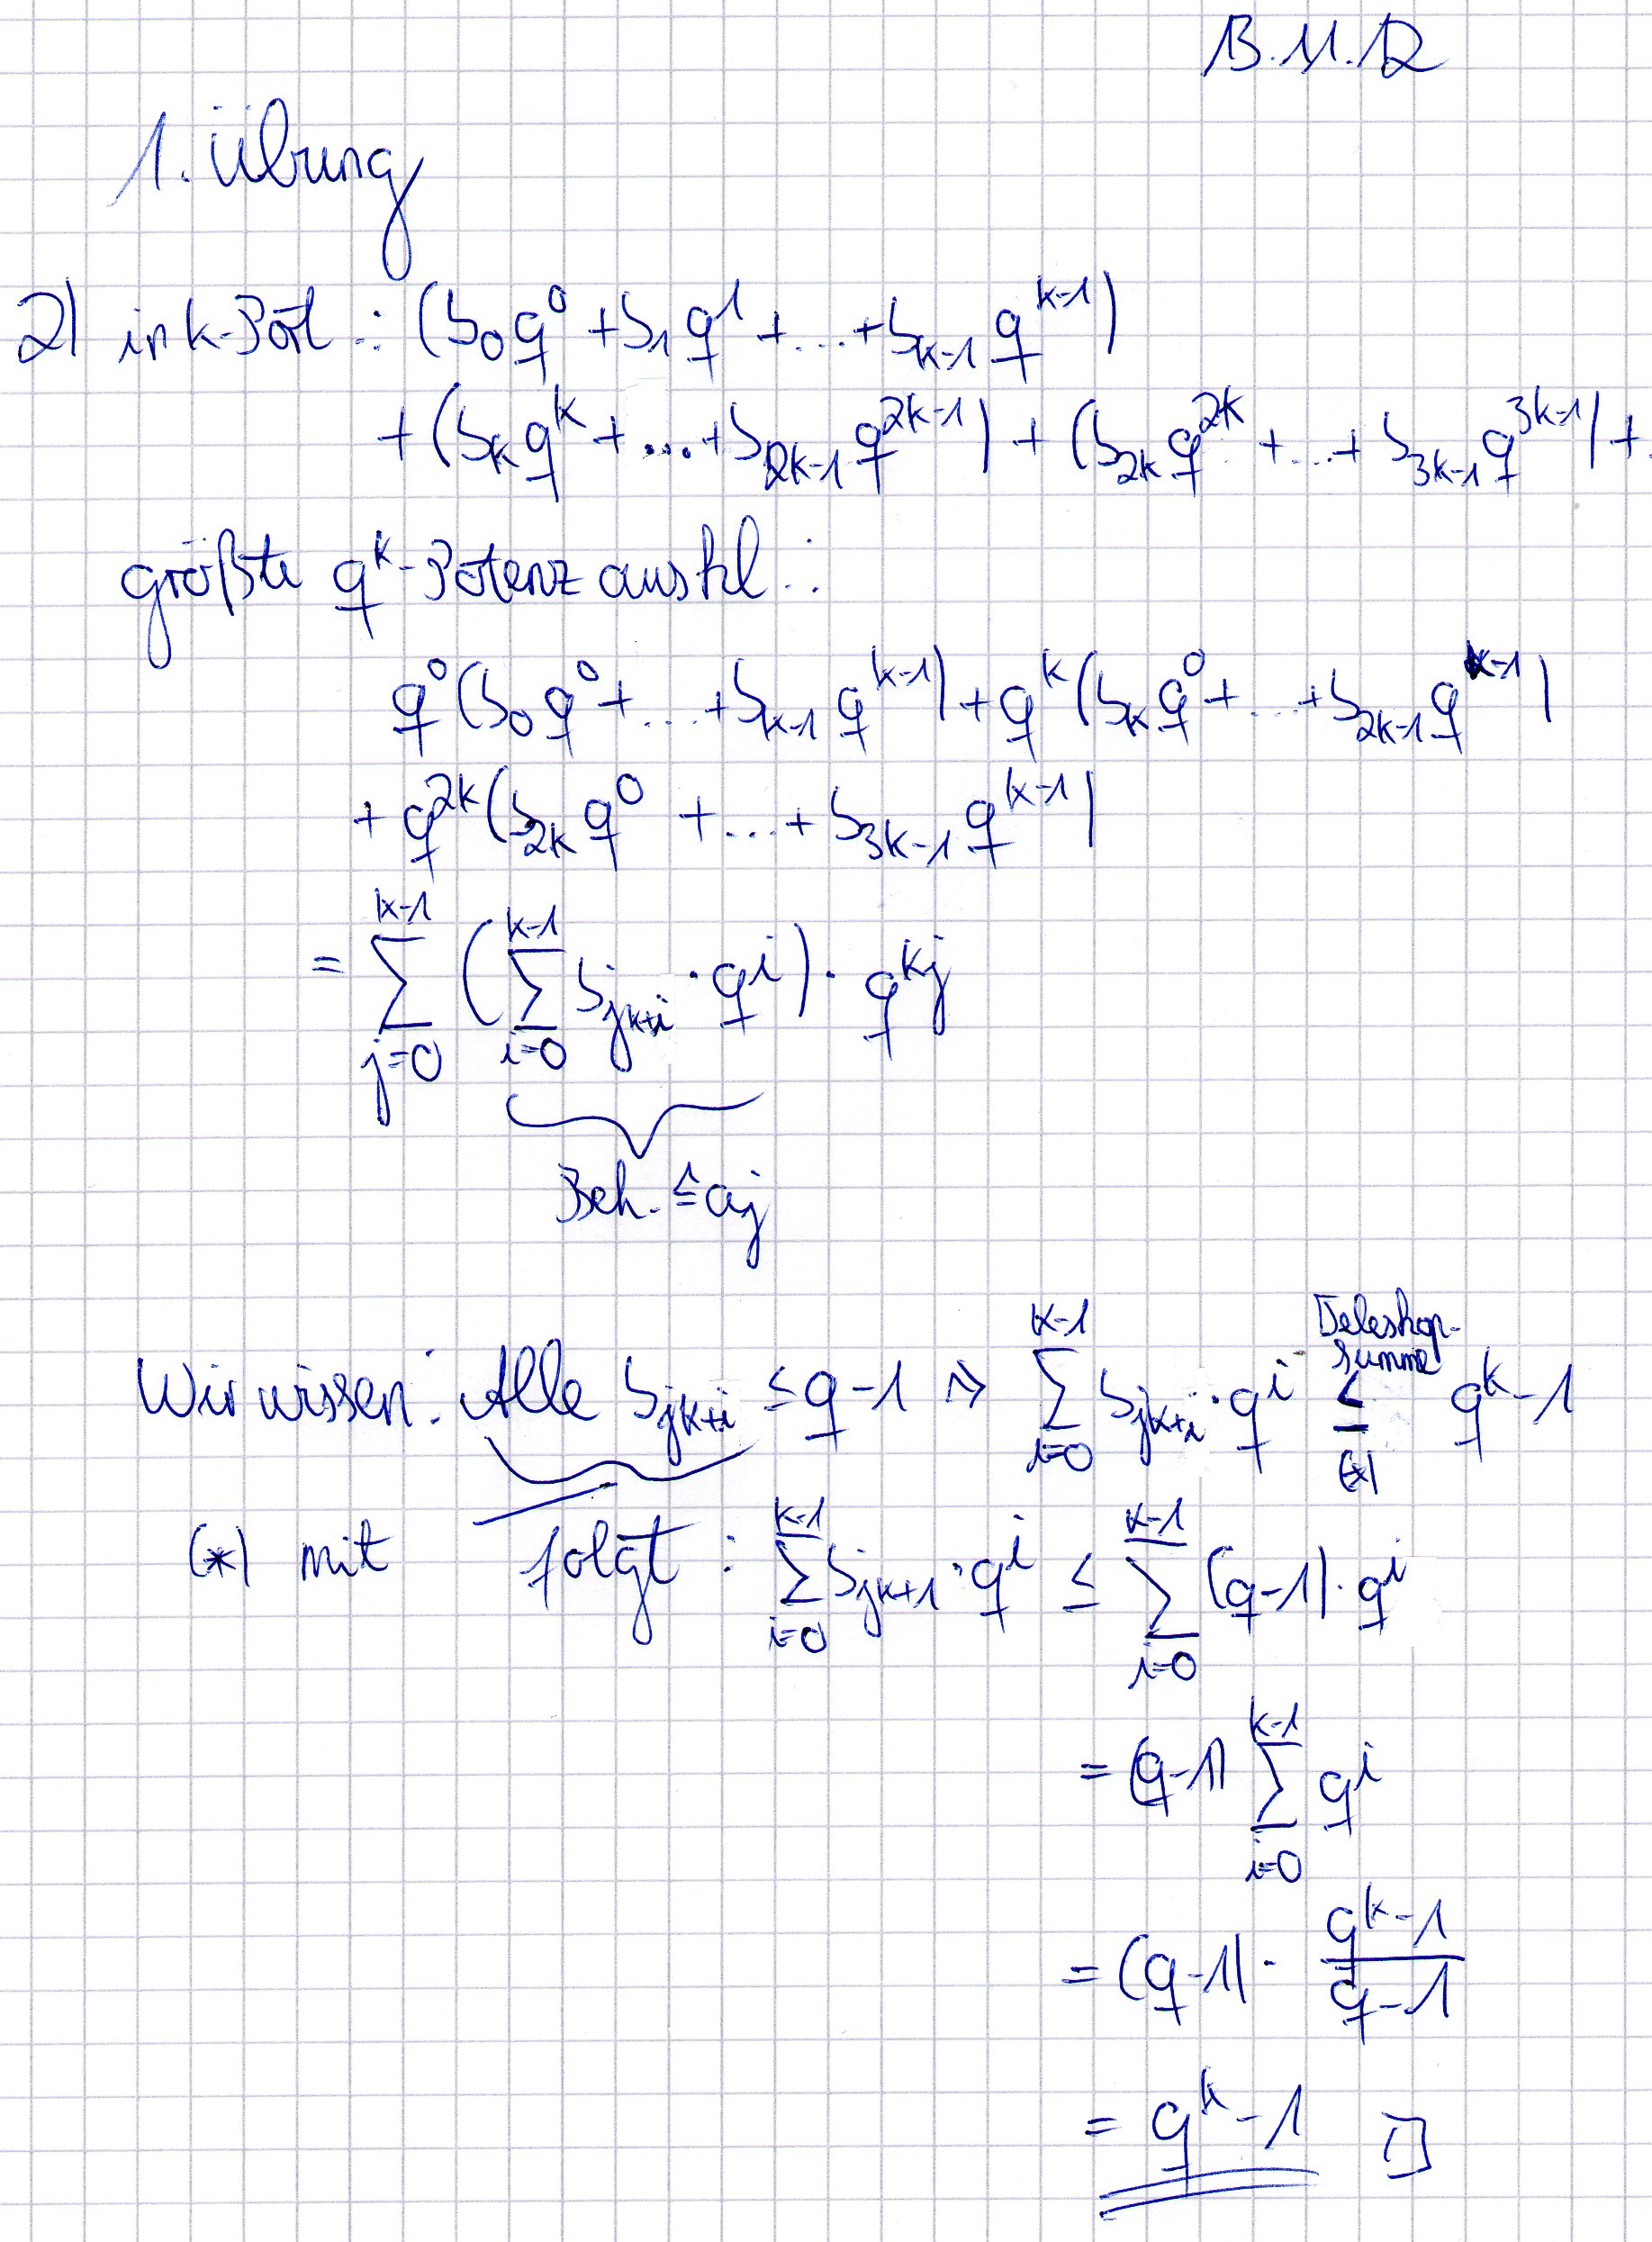 13.11.12
1. Übung
2) in k-Pot.: (b₀q⁰ + b₁q¹ + ... + b_{k-1} q^{k-1})
+ (b_k q^k + ... + b_{2k-1} q^{2k-1}) + (b_{2k} q^{2k} + ... + b_{3k-1} q^{3k-1}) + .
größte q^k-Potenz auskl.:
q⁰(b₀q⁰ + ... + b_{k-1} q^{k-1}) + q^k(b_k q⁰ + ... + b_{2k-1} q^{k-1})
+ q^{2k}(b_{2k} q⁰ + ... + b_{3k-1} q^{k-1})
= ∑_{j=0}^{k-1} (∑_{i=0}^{k-1} b_{jk+i} · q^i) · q^{kj}
Beh. ≙ a_j
Wir wissen: Alle b_{jk+i} ≤ q-1 ⇒ ∑_{i=0}^{k-1} b_{jk+i} · q^i ≤ (Teleskopsumme) (*) q^k - 1
(*) mit folgt: ∑_{i=0}^{k-1} b_{jk+1} · q^i ≤ ∑_{i=0}^{k-1} (q-1) · q^i
= (q-1) ∑_{i=0}^{k-1} q^i
= (q-1) · (q^k-1)/(q-1)
= q^k - 1 □